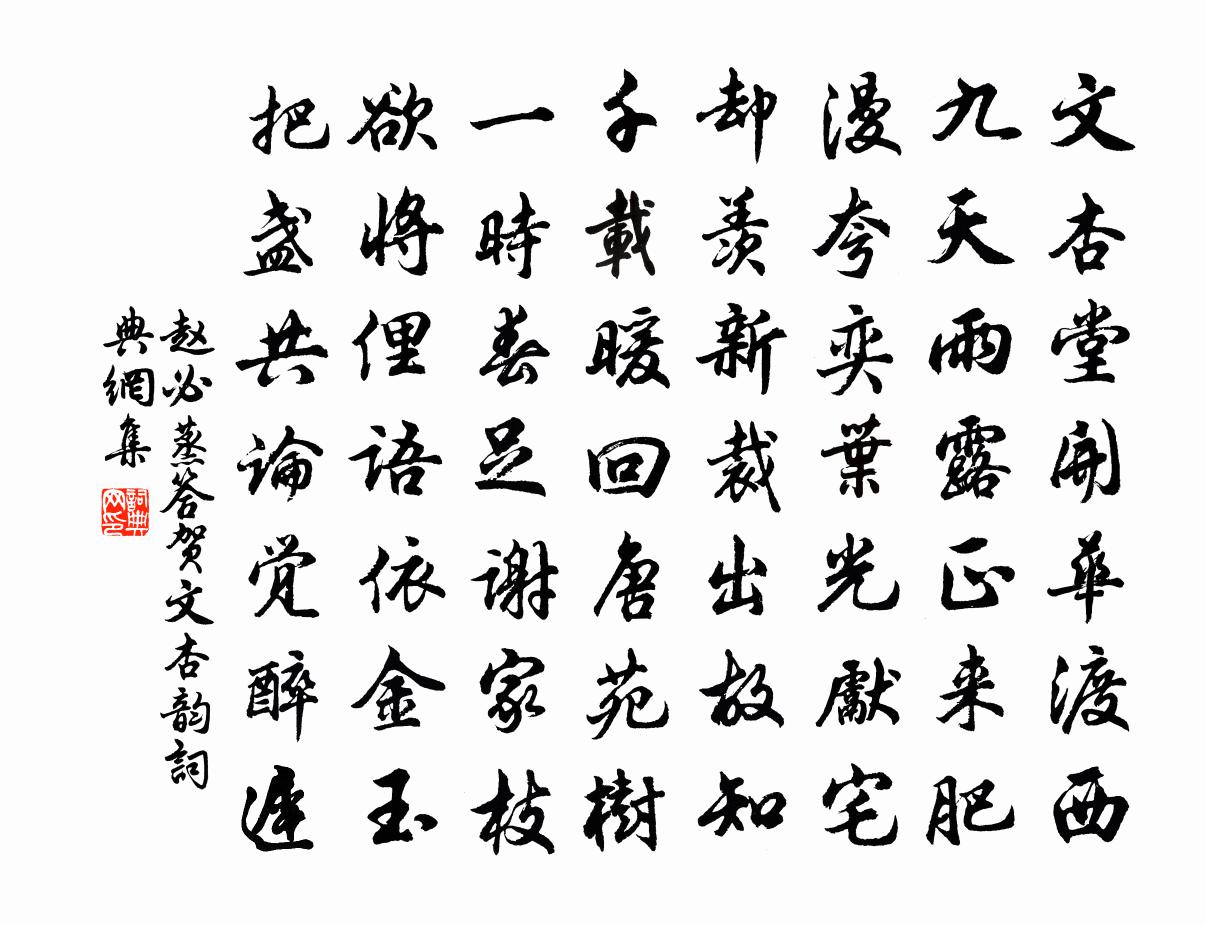 文杏堂開華渡西
九天雨露正来肥
漫夸奕葉光獻宅
却羨新裁出故知
千載暖回唐苑樹
一時春足謝家枝
欲將俚語依金玉
把盞共論觉醉遲
赵必蒸答贺文杏韵詞
典網集
詞典网印